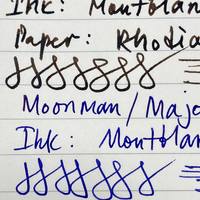 Ink: Montblan
Paper: Rhodia
Moonman / Majo
Ink: Montblan